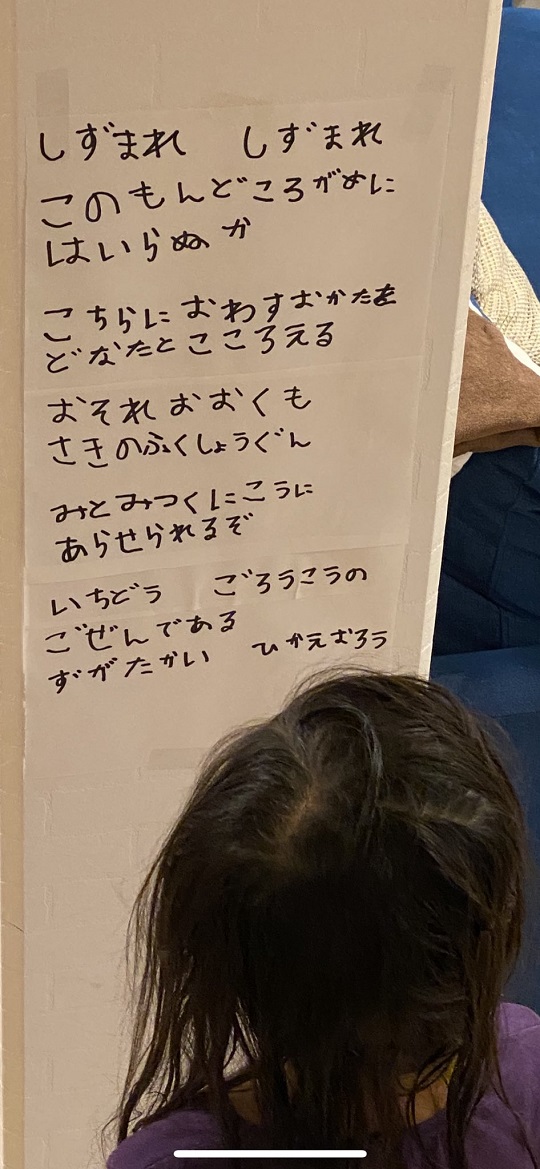 しずまれ しずまれ
このもんどころがめに
はいらぬか
こちらにおわすおかたを
どなたとこころえる
おそれおおくも
さきのふくしょうぐん
みとみつくにこうに
あらせられるぞ
いちどう ごろうこうの
ごぜんである
ずがたかい ひかえおろう